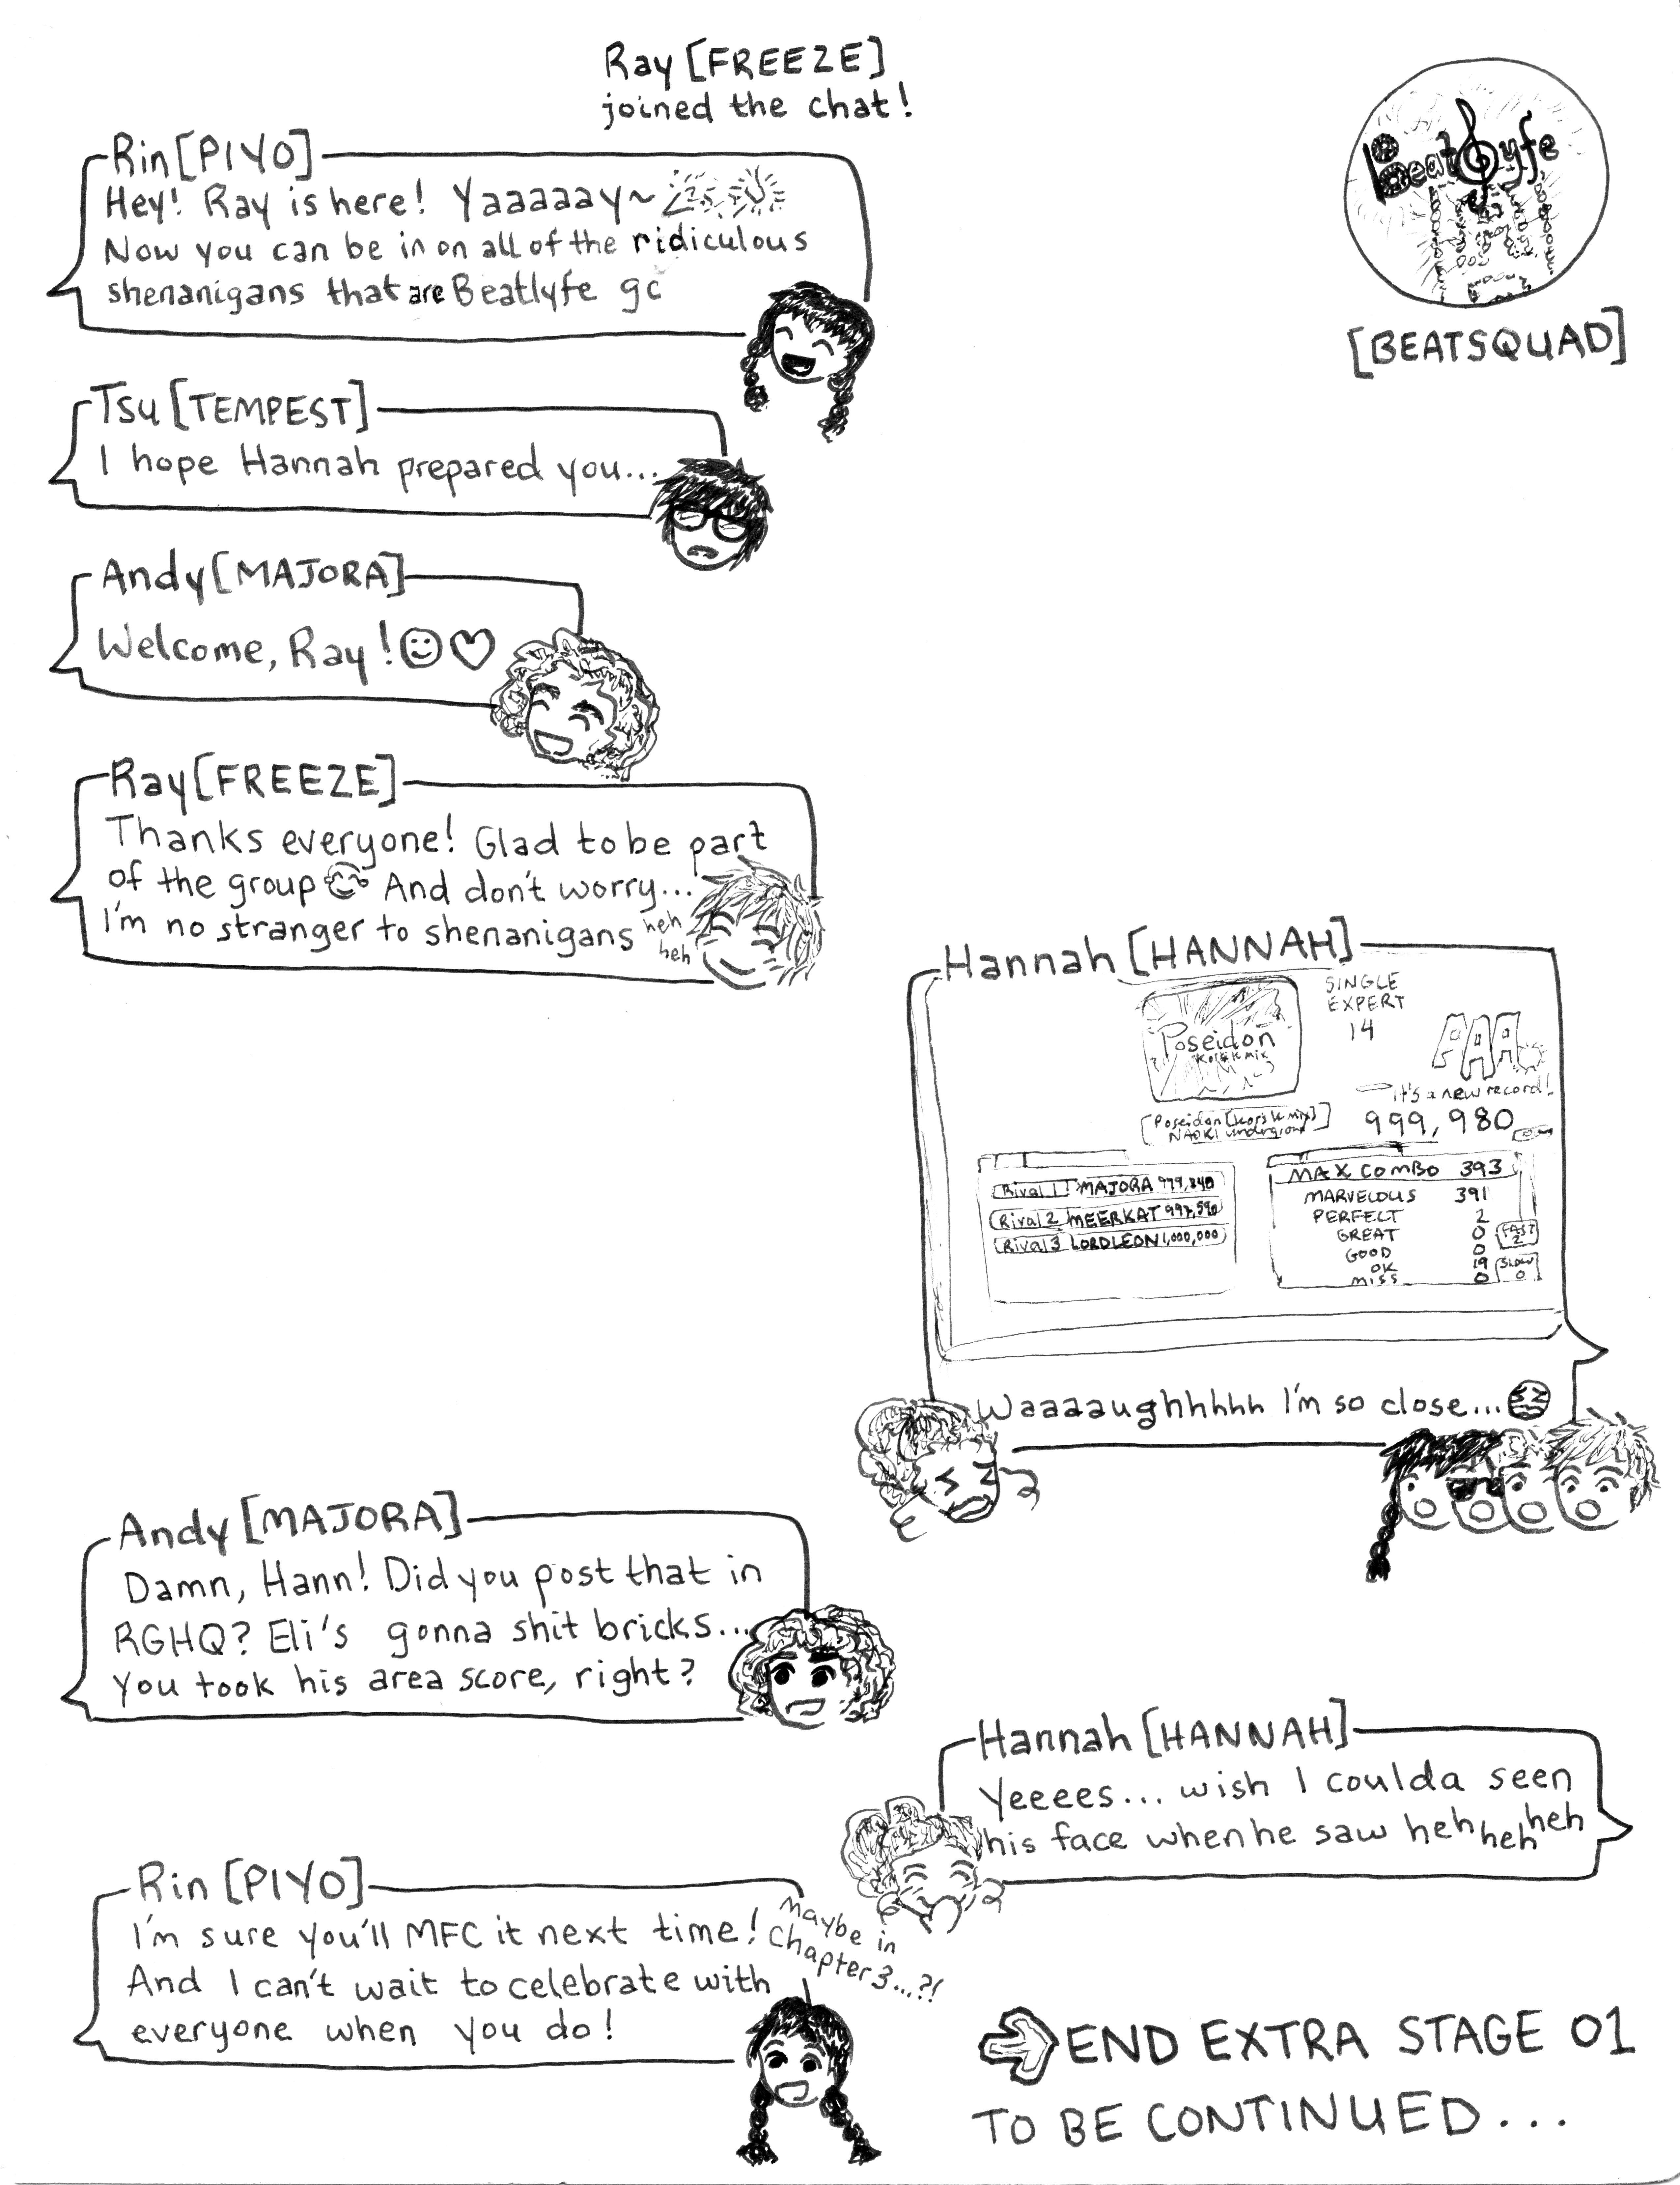 Ray [FREEZE]
joined the chat!
Beatlyfe
[BEATSQUAD]
Rin [PIYO]
Hey! Ray is here! Yaaaaay~
Now you can be in on all of the ridiculous
shenanigans that are Beatlyfe gc
Tsu [TEMPEST]
I hope Hannah prepared you...
Andy [MAJORA]
Welcome, Ray!
Ray [FREEZE]
Thanks everyone! Glad to be part
of the group And don't worry...
I'm no stranger to shenanigans heh
heh
Hannah [HANNAH]
SINGLE
EXPERT
14
Poseidon
mix
AAA
It's a new record!
[Poseidon [kors k mix]]
NAOKI underground
999,980
Rival 1 MAJORA 979,840
Rival 2 MEERKAT 997,590
Rival 3 LORDLEON 1,000,000
MAX COMBO 393
MARVELOUS 391
PERFECT 2
GREAT 0
GOOD 0
OK 19
MISS 0
FAST
2
SLOW
0
Waaaaughhhhh I'm so close...
Andy [MAJORA]
Damn, Hann! Did you post that in
RGHQ? Eli's gonna shit bricks...
You took his area score, right?
Hannah [HANNAH]
Yeeees... wish I coulda seen
his face when he saw heh heh heh
Rin [PIYO]
I'm sure you'll MFC it next time!
And I can't wait to celebrate with
everyone when you do!
Maybe in
Chapter 3...?!
END EXTRA STAGE 01
TO BE CONTINUED...